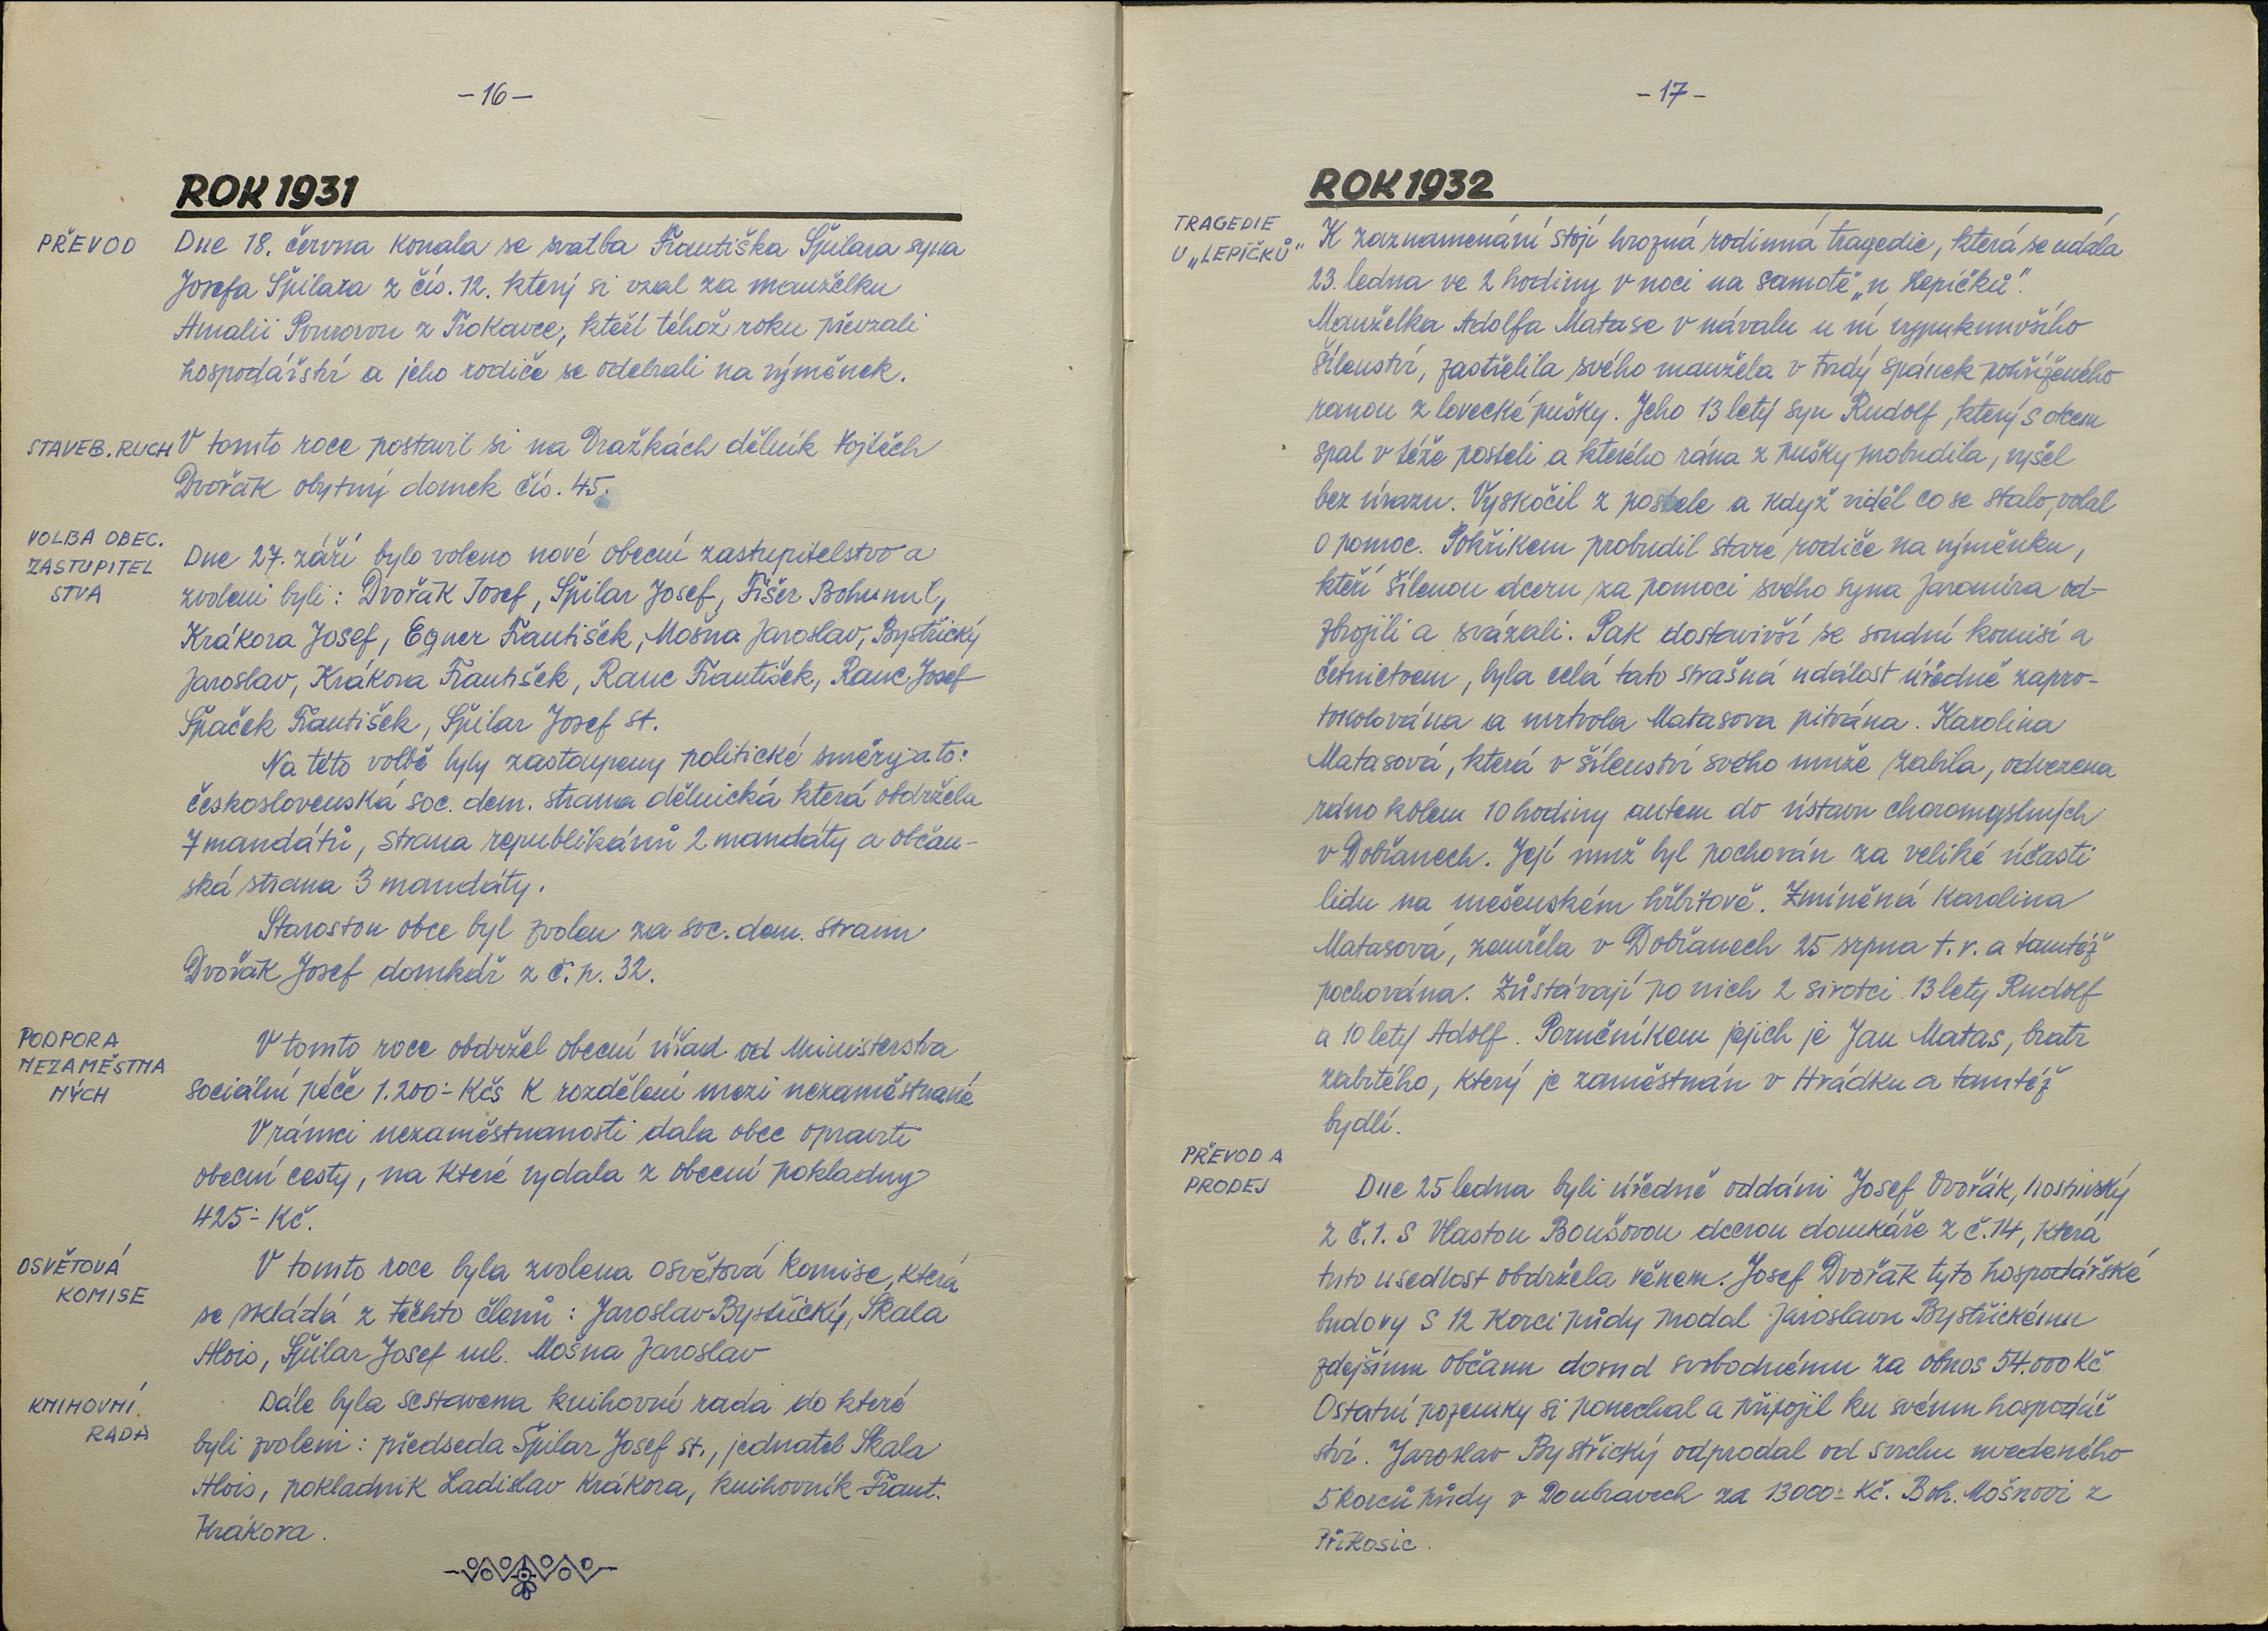 -16-
ROK 1931
PŘEVOD
Dne 18. června konala se svatba Františka Špilara syna
Josefa Špilara z čís. 12. který si vzal za manželku
Amalii Pourovou z Trokavce, kteří téhož roku převzali
hospodářství a jeho rodiče se odebrali na výměnek.
STAVEB. RUCH
V tomto roce postavil si na Dražkách dělník Vojtěch
Dvořák obytný domek čís. 45.
VOLBA OBEC.
ZASTUPITEL
STVA
Dne 27. září bylo voleno nové obecní zastupitelstvo a
zvoleni byli: Dvořák Josef, Špilar Josef, Fišer Bohumil,
Krákora Josef, Egner František, Mošna Jaroslav, Bystřický
Jaroslav, Krákora František, Ranc František, Ranc Josef
Špaček František, Špilar Josef st.
Na této volbě byly zastoupeny politické směry a to:
československá soc. dem. strana dělnická která obdržela
7 mandátů, strana republikánů 2 mandáty a občan-
ská strana 3 mandáty.
Starostou obce byl zvolen za soc. dem. stranu
Dvořák Josef domkář z č.p. 32.
PODPORA
NEZAMĚSTNA
NÝCH
V tomto roce obdržel obecní úřad od Ministerstva
sociální péče 1.200:- Kčs k rozdělení mezi nezaměstnané
V rámci nezaměstnanosti dala obec opraviti
obecní cesty, na které vydala z obecní pokladny
425:- Kč.
OSVĚTOVÁ
KOMISE
V tomto roce byla zvolena osvětová komise, která
se skládá z těchto členů: Jaroslav Bystřický, Skala
Alois, Špilar Josef ml. Mošna Jaroslav
KNIHOVNÍ
RADA
Dále byla sestavena knihovní rada do které
byli zvoleni: předseda Špilar Josef st., jednatel Skala
Alois, pokladník Ladislav Krákora, knihovník Frant.
Krákora.
-17-
ROK 1932
TRAGEDIE
U „LEPÍČKŮ"
K zaznamenání stojí hrozná rodinná tragedie, která se udála
23. ledna ve 2 hodiny v noci na samotě „u Lepíčků".
Manželka Adolfa Matase v návalu u ní vypuknuvšího
šílenství, zastřelila svého manžela v tvrdý spánek pohříženého
ranou z lovecké pušky. Jeho 13 letý syn Rudolf, který s otcem
spal v téže posteli a kterého rána z pušky probudila, vyšel
bez úrazu. Vyskočil z postele a když viděl co se stalo, volal
o pomoc. Pokřikem probudil staré rodiče na výměnku,
kteří šílenou dceru za pomoci svého syna Jaromíra od-
zbrojili a svázali. Pak dostavivší se soudní komisí a
četnictvem, byla celá tato strašná událost úředně zapro-
tokolována a mrtvola Matasova pitvána. Karolina
Matasová, která v šílenství svého muže zabila, odvezena
ráno kolem 10 hodiny autem do ústavu choromyslných
v Dobřanech. Její muž byl pochován za veliké účasti
lidu na mešenském hřbitově. Zmíněná Karolina
Matasová, zemřela v Dobřanech 25 srpna t.r. a tamtéž
pochována. Zůstávají po nich 2 sirotci 13 letý Rudolf
a 10 letý Adolf. Poručníkem jejich je Jan Matas, bratr
zabitého, který je zaměstnán v Hrádku a tamtéž
bydlí.
PŘEVOD A
PRODEJ
Dne 25 ledna byli úředně oddáni Josef Dvořák, hostinský
z č.1. s Vlastou Boušovou dcerou domkáře z č.14, která
tuto usedlost obdržela věnem. Josef Dvořák tyto hospodářské
budovy s 12 korci půdy prodal Jaroslavu Bystřickému
zdejšímu občanu dosud svobodnému za obnos 54.000 Kč
Ostatní pozemky si ponechal a připojil ku svému hospodář
ství. Jaroslav Bystřický odprodal od svrchu uvedeného
5 korců půdy v Doubravech za 13000:- Kč. Boh. Mošnovi z
Příkosic.